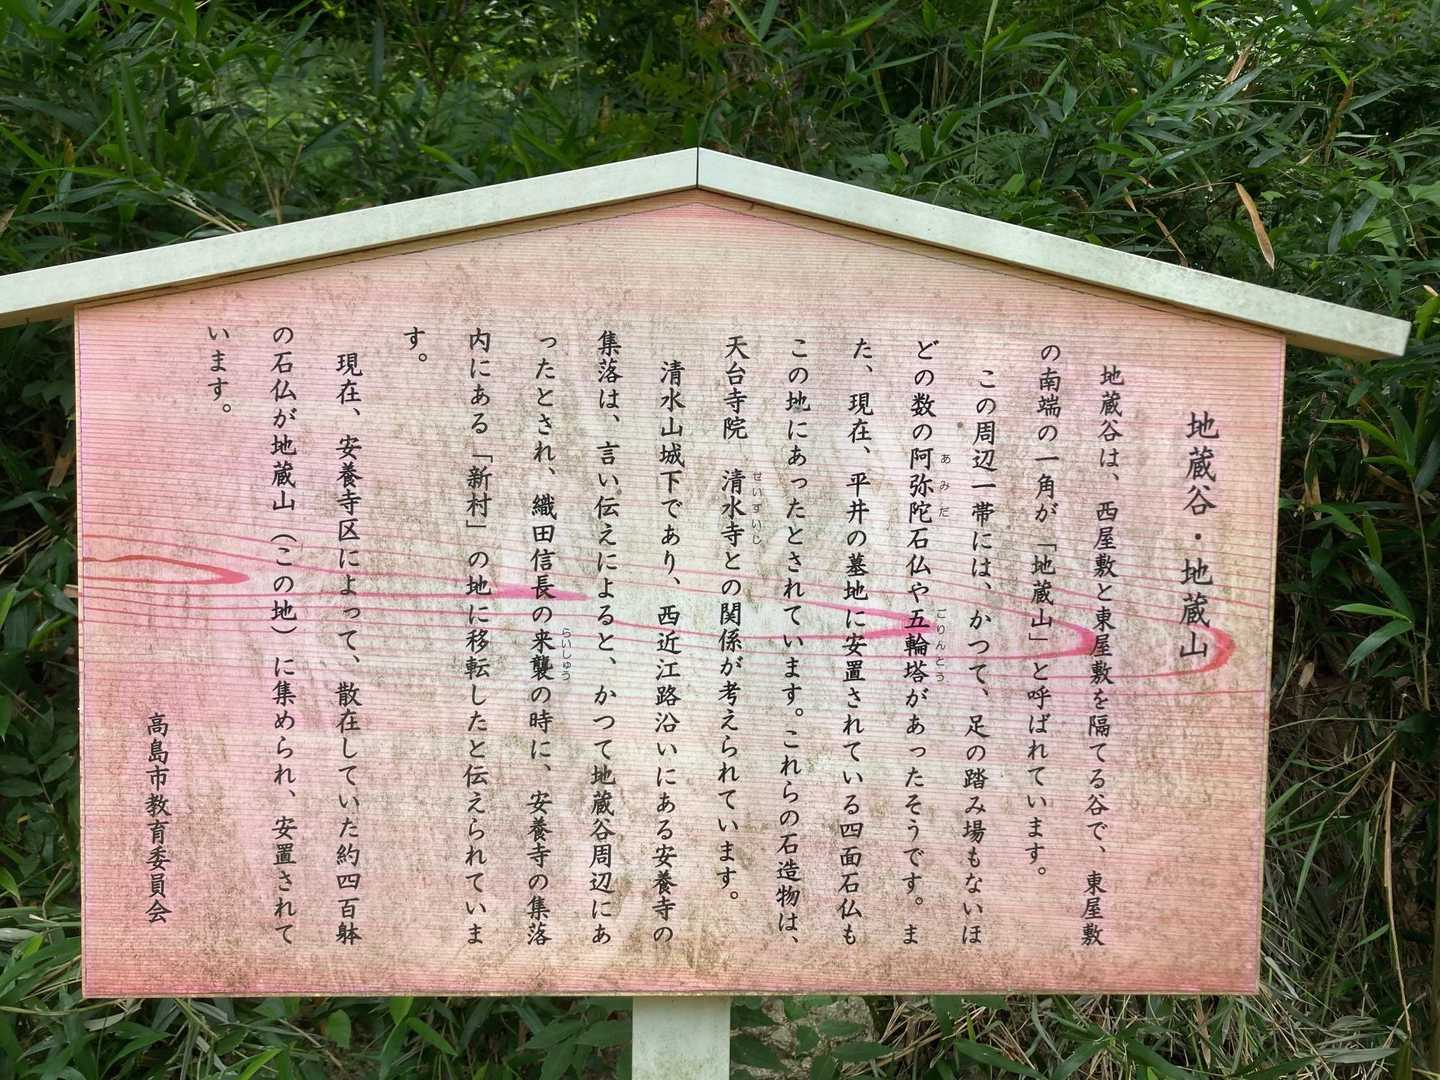 地蔵谷・地蔵山
地蔵谷は、西屋敷と東屋敷を隔てる谷で、東屋敷
の南端の一角が「地蔵山」と呼ばれています。
この周辺一帯には、かつて、足の踏み場もないほ
どの数の阿弥陀石仏や五輪塔があったそうです。ま
あみだ
ごりんとう
た、現在、平井の墓地に安置されている四面石仏も
この地にあったとされています。これらの石造物は、
天台寺院　清水寺との関係が考えられています。
せいすいじ
清水山城下であり、西近江路沿いにある安養寺の
集落は、言い伝えによると、かつて地蔵谷周辺にあ
ったとされ、織田信長の来襲の時に、安養寺の集落
らいしゅう
内にある「新村」の地に移転したと伝えられていま
す。
現在、安養寺区によって、散在していた約四百躰
の石仏が地蔵山（この地）に集められ、安置されて
います。
高島市教育委員会